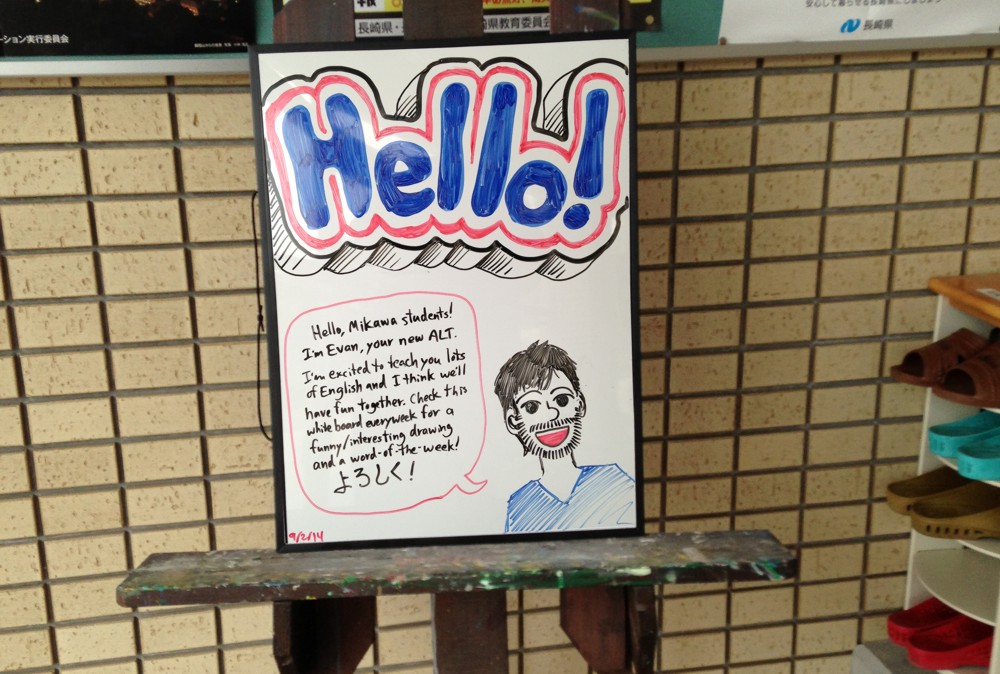 ーション実行委員会
長崎県
県教育委員会
長崎県
Hello!
Hello, Mikawa students!
I'm Evan, your new ALT.
I'm excited to teach you lots
of English and I think we'll
have fun together. Check this
white board everyweek for a
funny/interesting drawing
and a word-of-the-week!
よろしく!
9/2/14